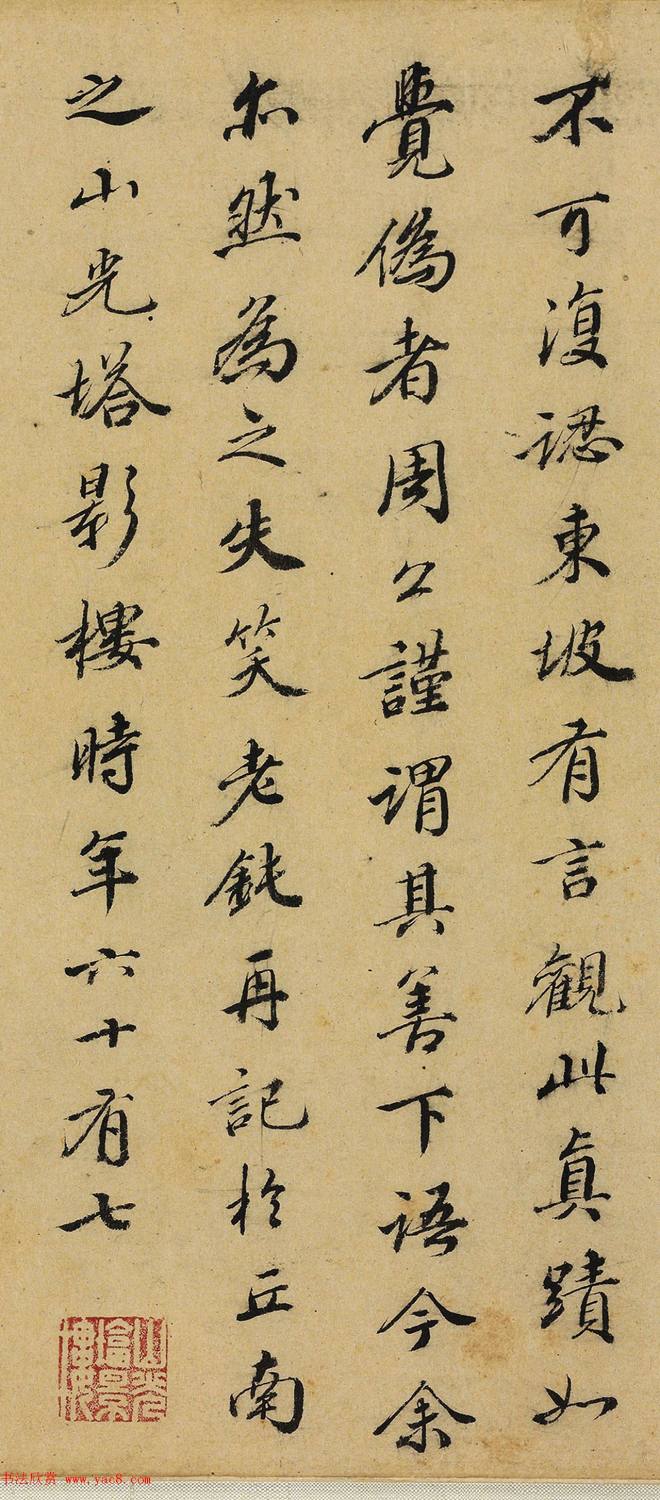 不可復認東坡有言觀此真蹟如
覺偽者周公謹謂其善下語今余
亦然為之失笑老鈍再記於丘南
之山光塔影樓時年六十有七
山光塔景樓
书法欣赏 www.yac8.com